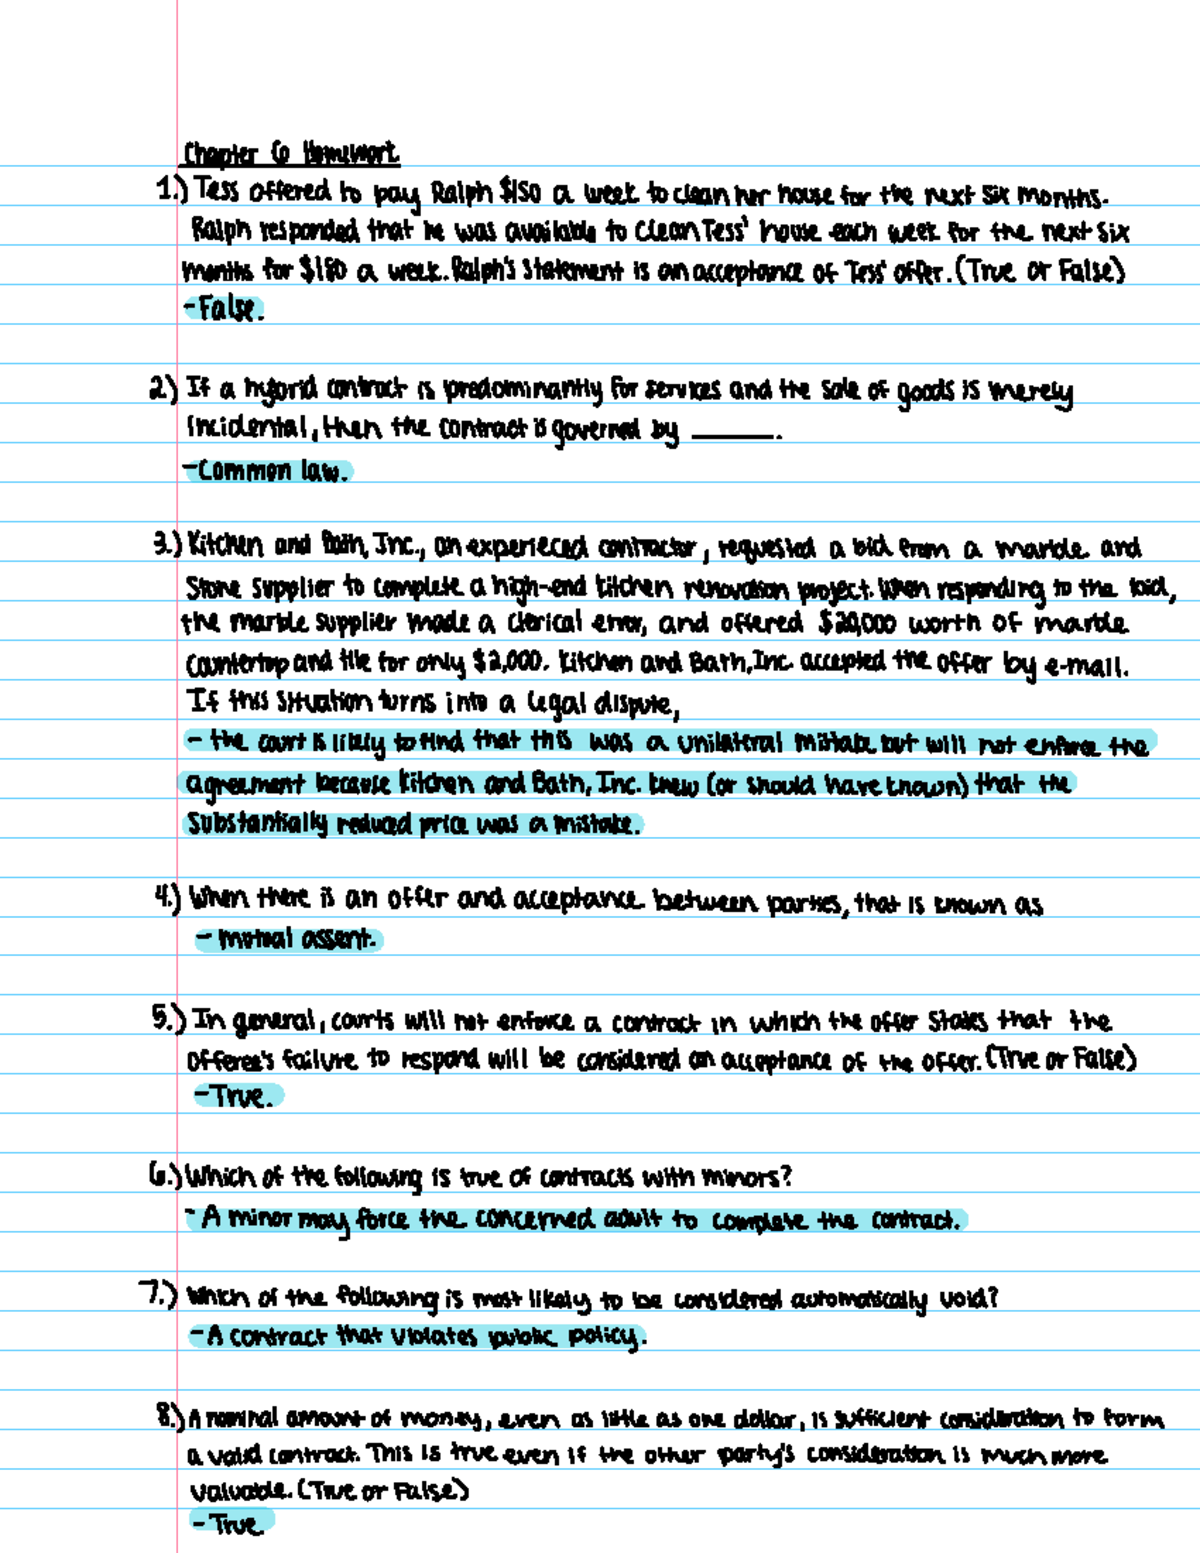 Chapter 6 Homework
1.) Tess offered to pay Ralph $150 a week to clean her house for the next six months.
Ralph responded that he was available to clean Tess' house each week for the next six
months for $180 a week. Ralph's statement is an acceptance of Tess' offer. (True or False)
- False.
2.) If a hybrid contract is predominantly for services and the sale of goods is merely
incidental, then the contract is governed by ______.
- Common law.
3.) Kitchen and Bath, Inc., an experieced contractor, requested a bid from a marble and
Stone supplier to complete a high-end kitchen renovation project. When responding to the bid,
the marble supplier made a clerical error, and offered $20,000 worth of marble
countertop and tile for only $2,000. Kitchen and Bath, Inc. accepted the offer by e-mail.
If this situation turns into a legal dispute,
- the court is likely to find that this was a unilateral mistake but will not enforce the
agreement because Kitchen and Bath, Inc. knew (or should have known) that the
substantially reduced price was a mistake.
4.) When there is an offer and acceptance between parties, that is known as
- mutual assent.
5.) In general, courts will not enforce a contract in which the offer states that the
offeree's failure to respond will be considered an acceptance of the offer. (True or False)
- True.
6.) Which of the following is true of contracts with minors?
- A minor may force the concerned adult to complete the contract.
7.) Which of the following is most likely to be considered automatically void?
- A contract that violates public policy.
8.) A nominal amount of money, even as little as one dollar, is sufficient consideration to form
a valid contract. This is true even if the other party's consideration is much more
valuable. (True or False)
- True